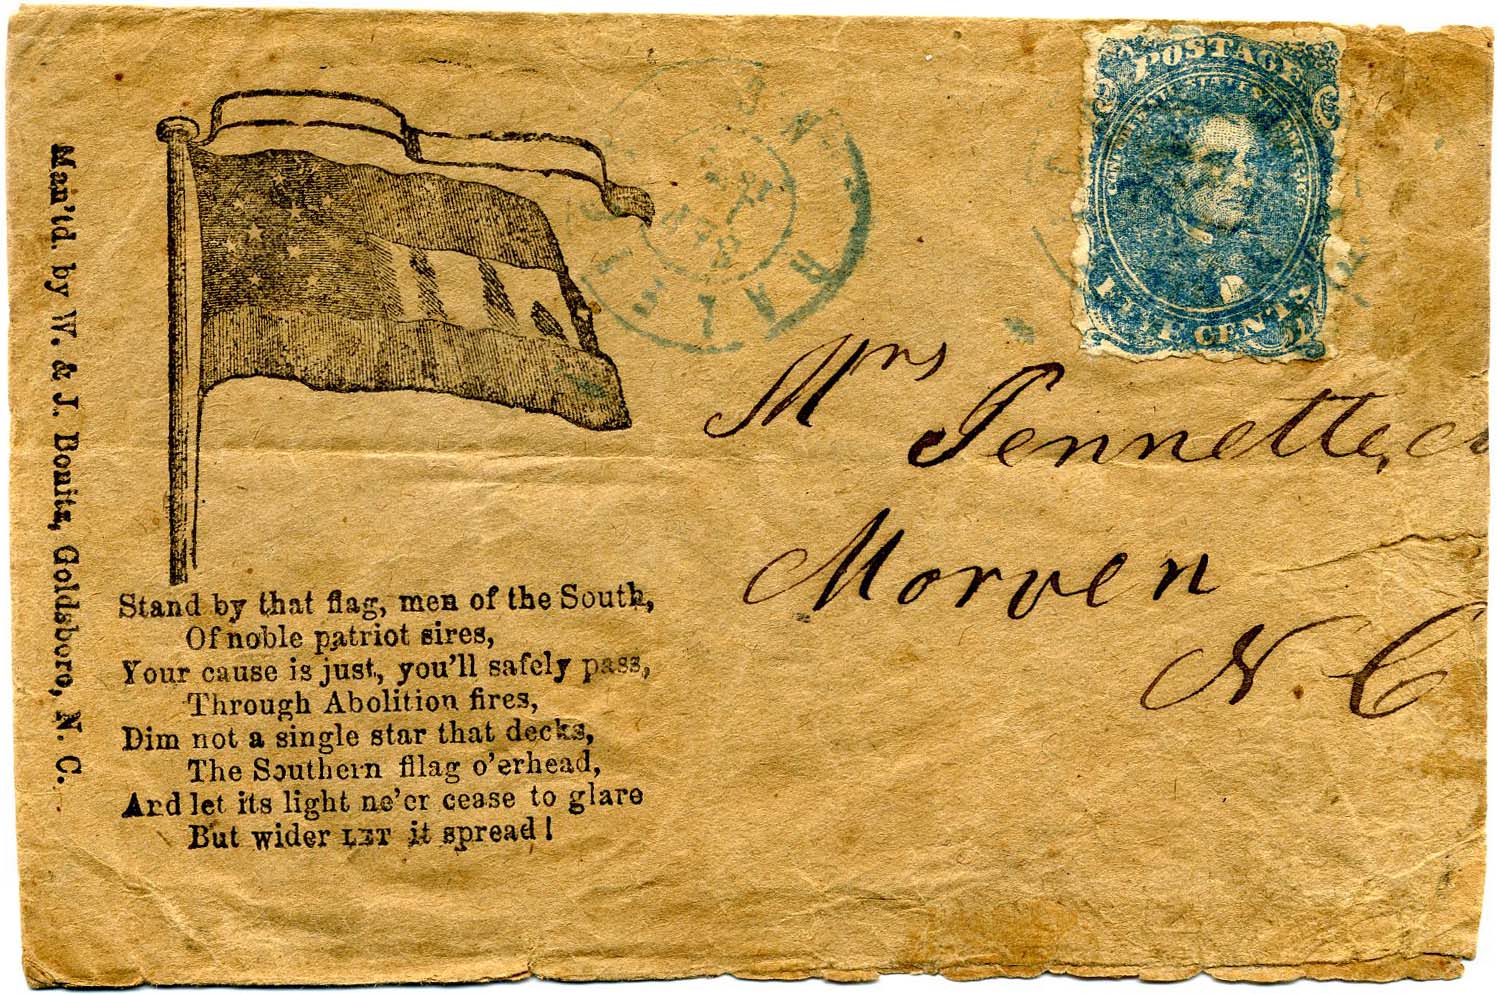 Man'td. by W. & J. Bonitz, Goldsboro, N. C.
Stand by that flag, men of the South,
Of noble patriot sires,
Your cause is just, you'll safely pass,
Through Abolition fires,
Dim not a single star that decks,
The Southern fllag o'erhead,
And let its light ne'er cease to glare
But wider LET it spread!
RALEIGH N.C.
POSTAGE
CONFEDERATE STATES OF AMERICA
FIVE CENTS
Mrs
Jennette
Morven
N. C